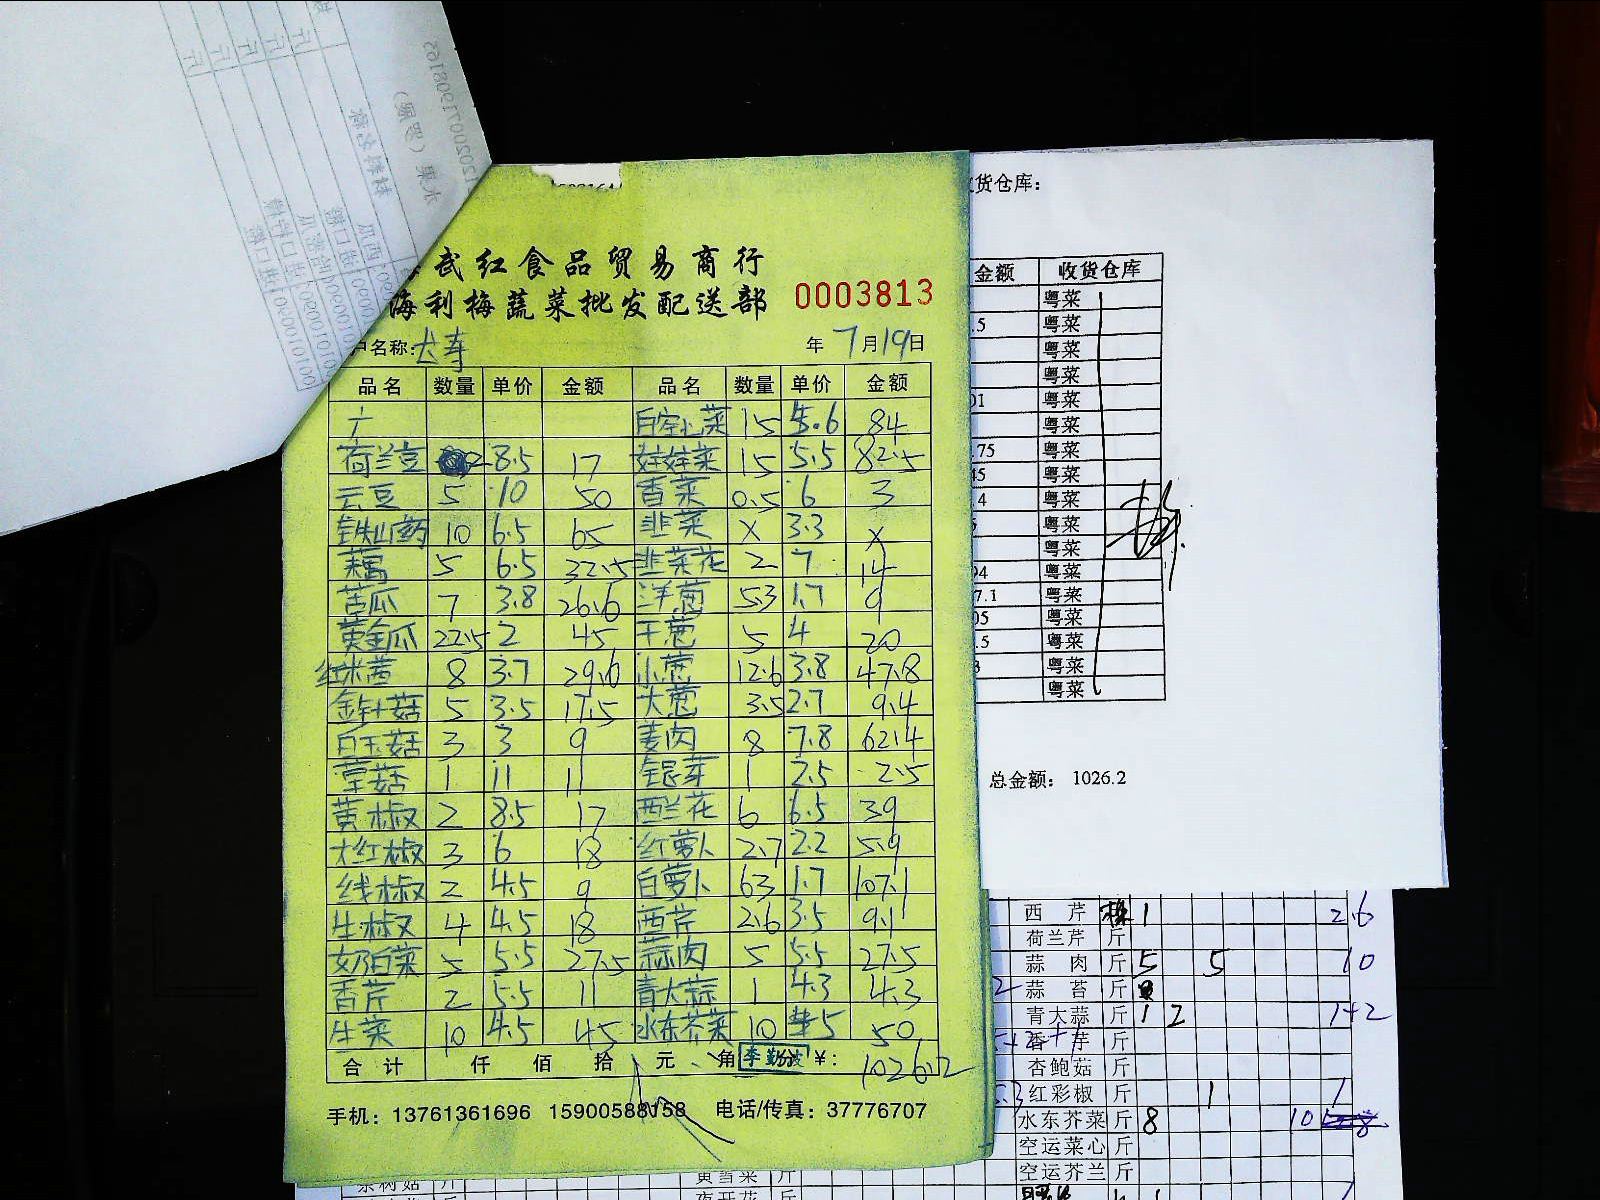 武红食品贸易商行
海利梅蔬菜批发配送部
0003813
户名称：大寿 年 7月19日
品名 数量 单价 金额 品名 数量 单价 金额
六 白空心菜 15 5.6 84
荷兰豆 2 8.5 17 娃娃菜 15 5.5 82.5
云豆 5 10 50 香菜 0.5 6 3
铁山药 10 6.5 65 韭菜 X 3.3 X
藕 5 6.5 32.5 韭菜花 2 7 14
苦瓜 7 3.8 26.6 洋葱 5.3 1.7 9
黄金瓜 22.5 2 45 干葱 5 4 20
红米茜 8 3.7 29.6 小葱 12.6 3.8 47.8
金针菇 5 3.5 17.5 大葱 3.5 2.7 9.4
白玉菇 3 3 9 姜肉 8 7.8 62.4
草菇 1 11 11 银芽 1 2.5 2.5
黄椒 2 8.5 17 西兰花 6 6.5 39
大红椒 3 6 18 红萝卜 2.7 2.2 5.9
线椒 2 4.5 9 白萝卜 63 1.7 107.1
生椒 4 4.5 18 西芹 2.6 3.5 9.1
奶白菜 5 5.5 27.5 蒜肉 5 5.5 27.5
香芹 2 5.5 11 青大蒜 1 4.3 4.3
生菜 10 4.5 45 水东芥菜 10 5 50
合计 仟 佰 拾 元 角 李勤波 ¥： 1026.2
手机：13761361696 15900588158 电话/传真：37776707
货仓库：
金额 收货仓库
粤菜
.5 粤菜
粤菜
粤菜
01 粤菜
粤菜
.75 粤菜
45 粤菜
4 粤菜
粤菜
粤菜
94 粤菜
7.1 粤菜
05 粤菜
.5 粤菜
3 粤菜
粤菜
总金额： 1026.2
西芹 1 2.6
荷兰芹 斤
蒜肉 斤 5 5 10
蒜苔 斤
青大蒜 斤 1 2 1+2
香芋 斤
杏鲍菇 斤
红彩椒 斤 1 1
水东芥菜 斤 8 10
空运菜心 斤
空运芥兰 斤
茶树菇 斤 黄雪菜 斤
夜开花 斤